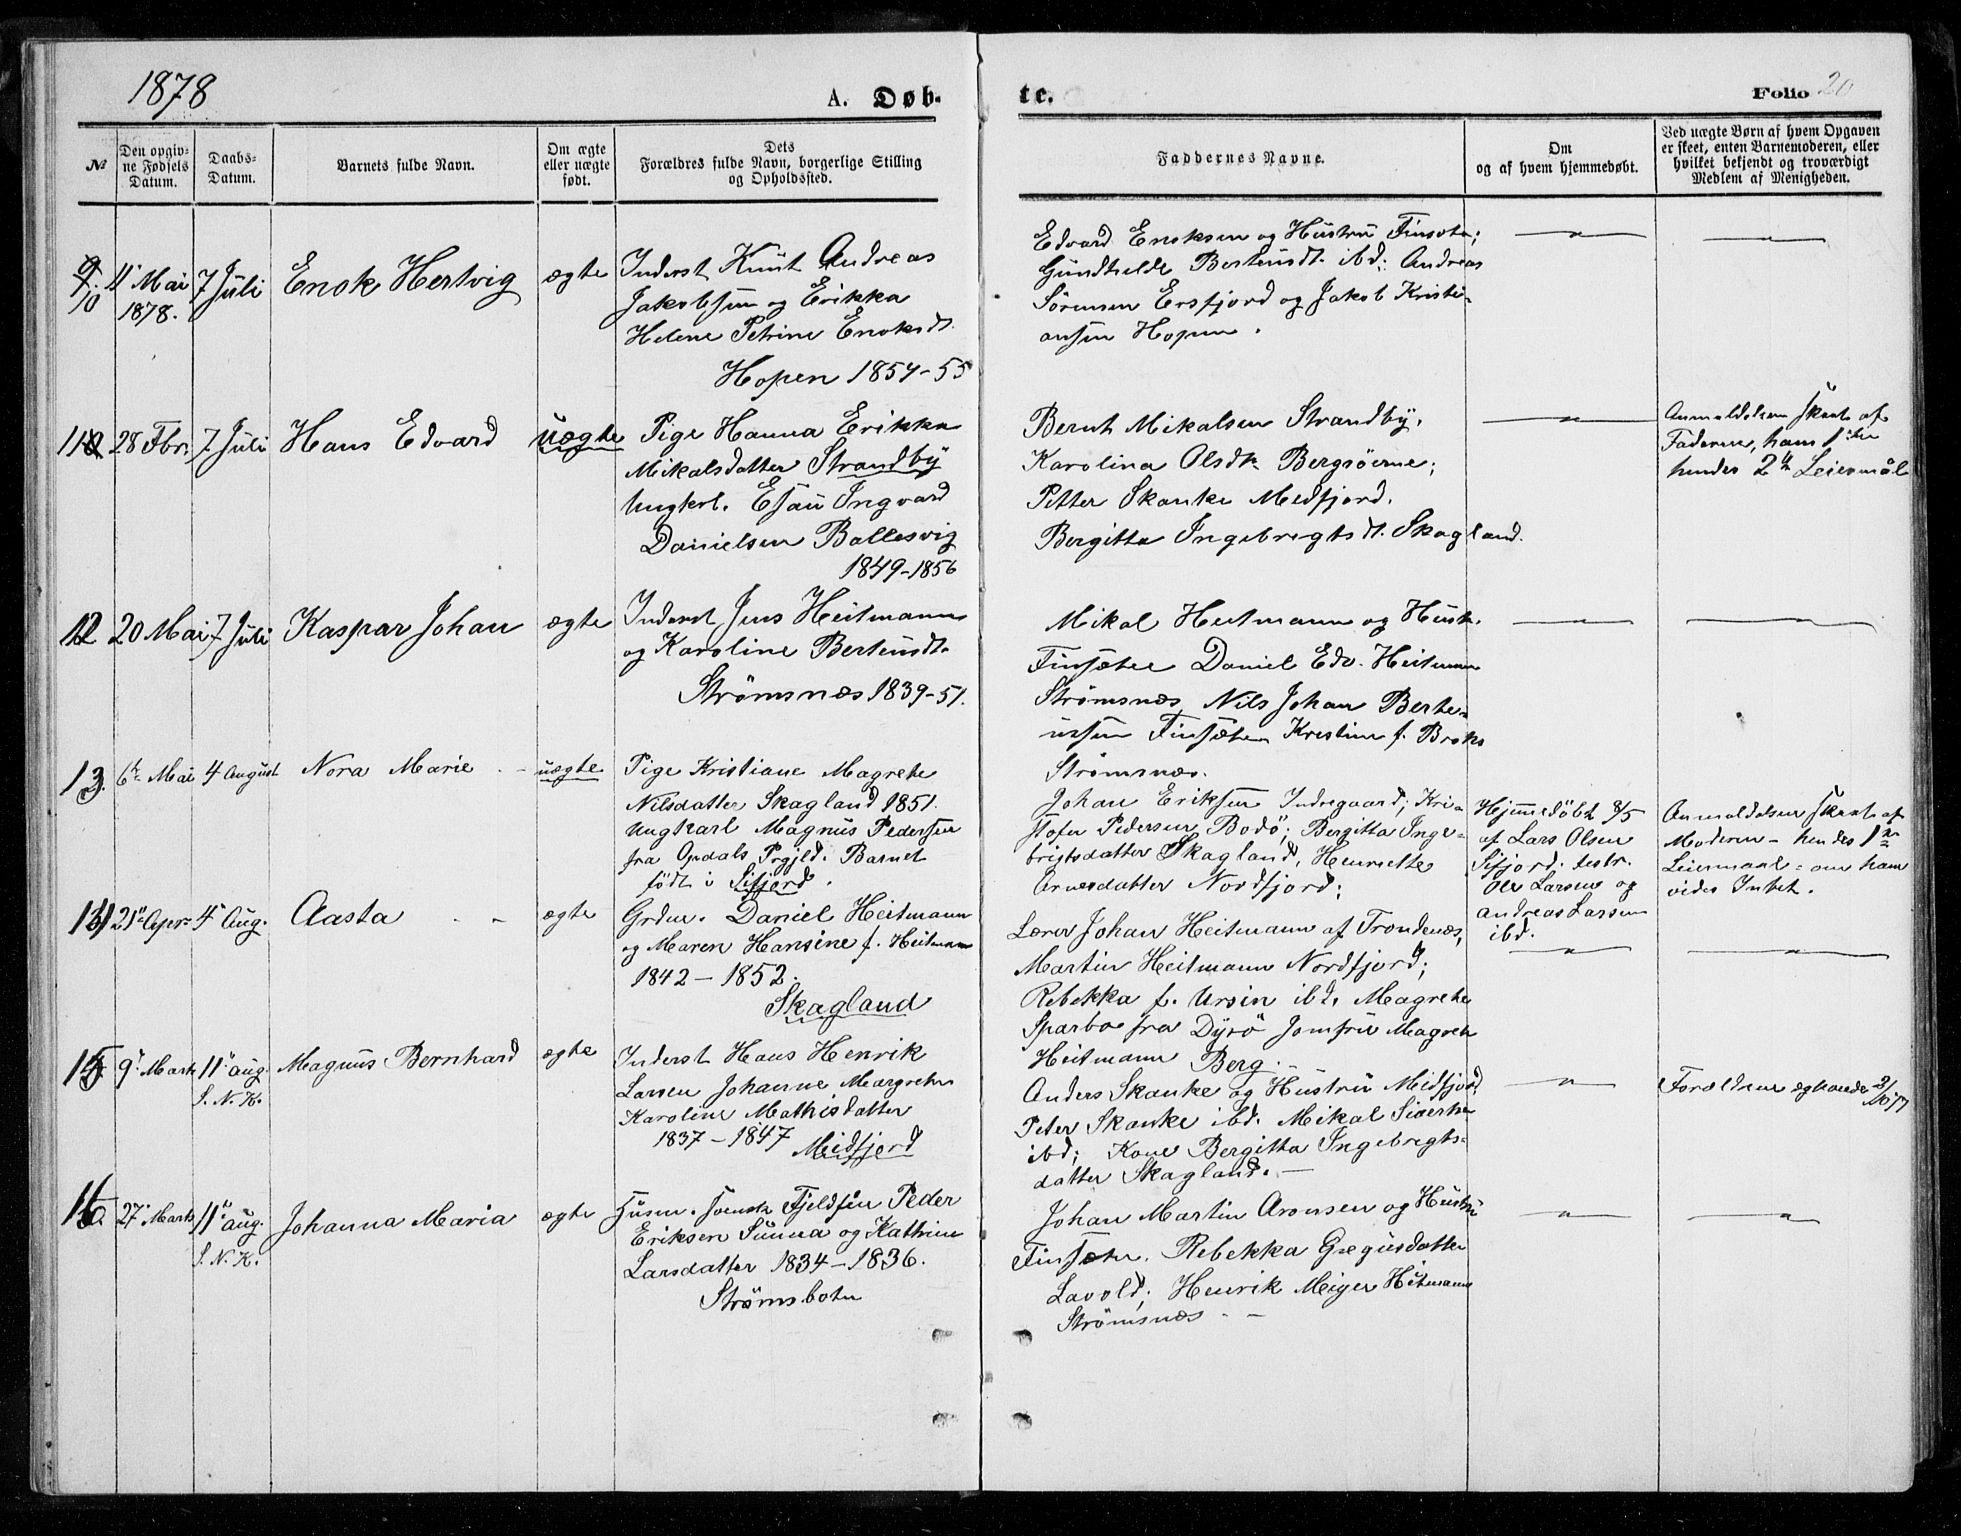 1878
A. Døb-
te.
Folio 20
№
Den opgiv-
ne Fødsels
Datum.
Daabs-
Datum.
Barnets fulde Navn.
Om ægte
eller uægte
født.
Dets
Forældres fulde Navn, borgerlige Stilling
og Opholdssted.
Faddernes Navne.
Om
og af hvem hjemmedøbt.
Ved uægte Børn af hvem Opgaven
er skeet, enten Barnemoderen, eller
hvilket bekjendt og troværdigt
Medlem af Menigheden.
10
4 Mai
1878.
7 Juli
Enok Hertvig
ægte
Inderst Knut Andreas
Jakobsen og Erikka
Helene Petrine Enoksdt.
Hopen 1854-55
Edvard Enoksen og Hustru Finsæter;
Gundhilde Berteusdt. ibd; Andreas
Sørensen Ersfjord og Jakob Kristi-
ansen Hopen.
11
28 Fbr.
7 Juli
Hans Edvard
uægte
Pige Hanna Erikka
Mikalsdatter Strandby
Ungkrl. Esau Ingvard
Danielsen Ballesvig
1849-1856
Bernt Mikalsen Strandby.
Karolina Olsdt. Bergsöerne;
Petter Skanke Medfjord.
Bergitta Ingebregtsdt. Skagland.
Anmeldelsen skeet af
Faderen, hans 1ste
hendes 2det Leiermål
12
20 Mai
7 Juli
Kaspar Johan
ægte
Inderst Jens Heitmann
og Karoline Berteusdt.
Strömsnæs 1839-51.
Mikal Heitmann og Hustr.
Finsæter Daniel Edv. Heitmann
Strømsnæs, Nils Johan Berte-
ussen Finsæter Kristine f. Broks
Strømsnæs.
13.
6te Mai
4 August
Nora Marie
uægte
Pige Kristiane Magrete
Nilsdatter Skagland 1851.
Ungkarl Magnus Pedersen
fra Opdals Prgjld. Barnet
födt i Sifjord.
Johan Eriksen Indregaard; Kri-
stofer Pedersen Bodö; Bergitta Inge-
brigtsdatter Skagland, Henriette
Arnesdatter Nordfjord;
Hjemmedöbt 8/5
af Lars Olsen
Sifjord. testr.
Ole Larsen og
Andreas Larsen
ibd.
Anmeldelsen skeet af
Moderen - hendes 1ste
Leiermaal - om ham
vides Intet.
14
21de Apr.
4 Aug.
Aasta
ægte
Grdm. Daniel Heitmann
og Maren Hansine f. Heitmann
1842 - 1852.
Skagland
Lærer Johan Heitmann af Trondenæs,
Martin Heitmann Nordfjord;
Rebekka f. Ursin ibd. Magrete
Sparbo fra Dyrö Jomfru Magrete
Heitmann Berg.
15
9 Marts
11 aug.
S. N. K.
Magnus Bernhard
ægte
Inderst Hans Henrik
Larsen Johanne Margrete
Karoline Mathisdatter
1837-1847 Meidfjord
Anders Skanke og Hustru Meidfjord
Peter Skanke ibd. Mikal Sivertsen
ibd; Kone Bergitta Ingebregts-
datter Skagland.
Forældrene ægteviede
16
27 Marts
11 aug.
S. N. K.
Johanna Maria
ægte
Husm. svensk Fjeldfin Peder
Eriksen Sunna og Kathrine
Larsdatter 1834-1836.
Strömsbotn
Johan Martin Aronsen og Hustru
Finsæter. Rebekka Gregusdatter
Lavold; Henrik Meiyer Heitmann
Strömsnæs